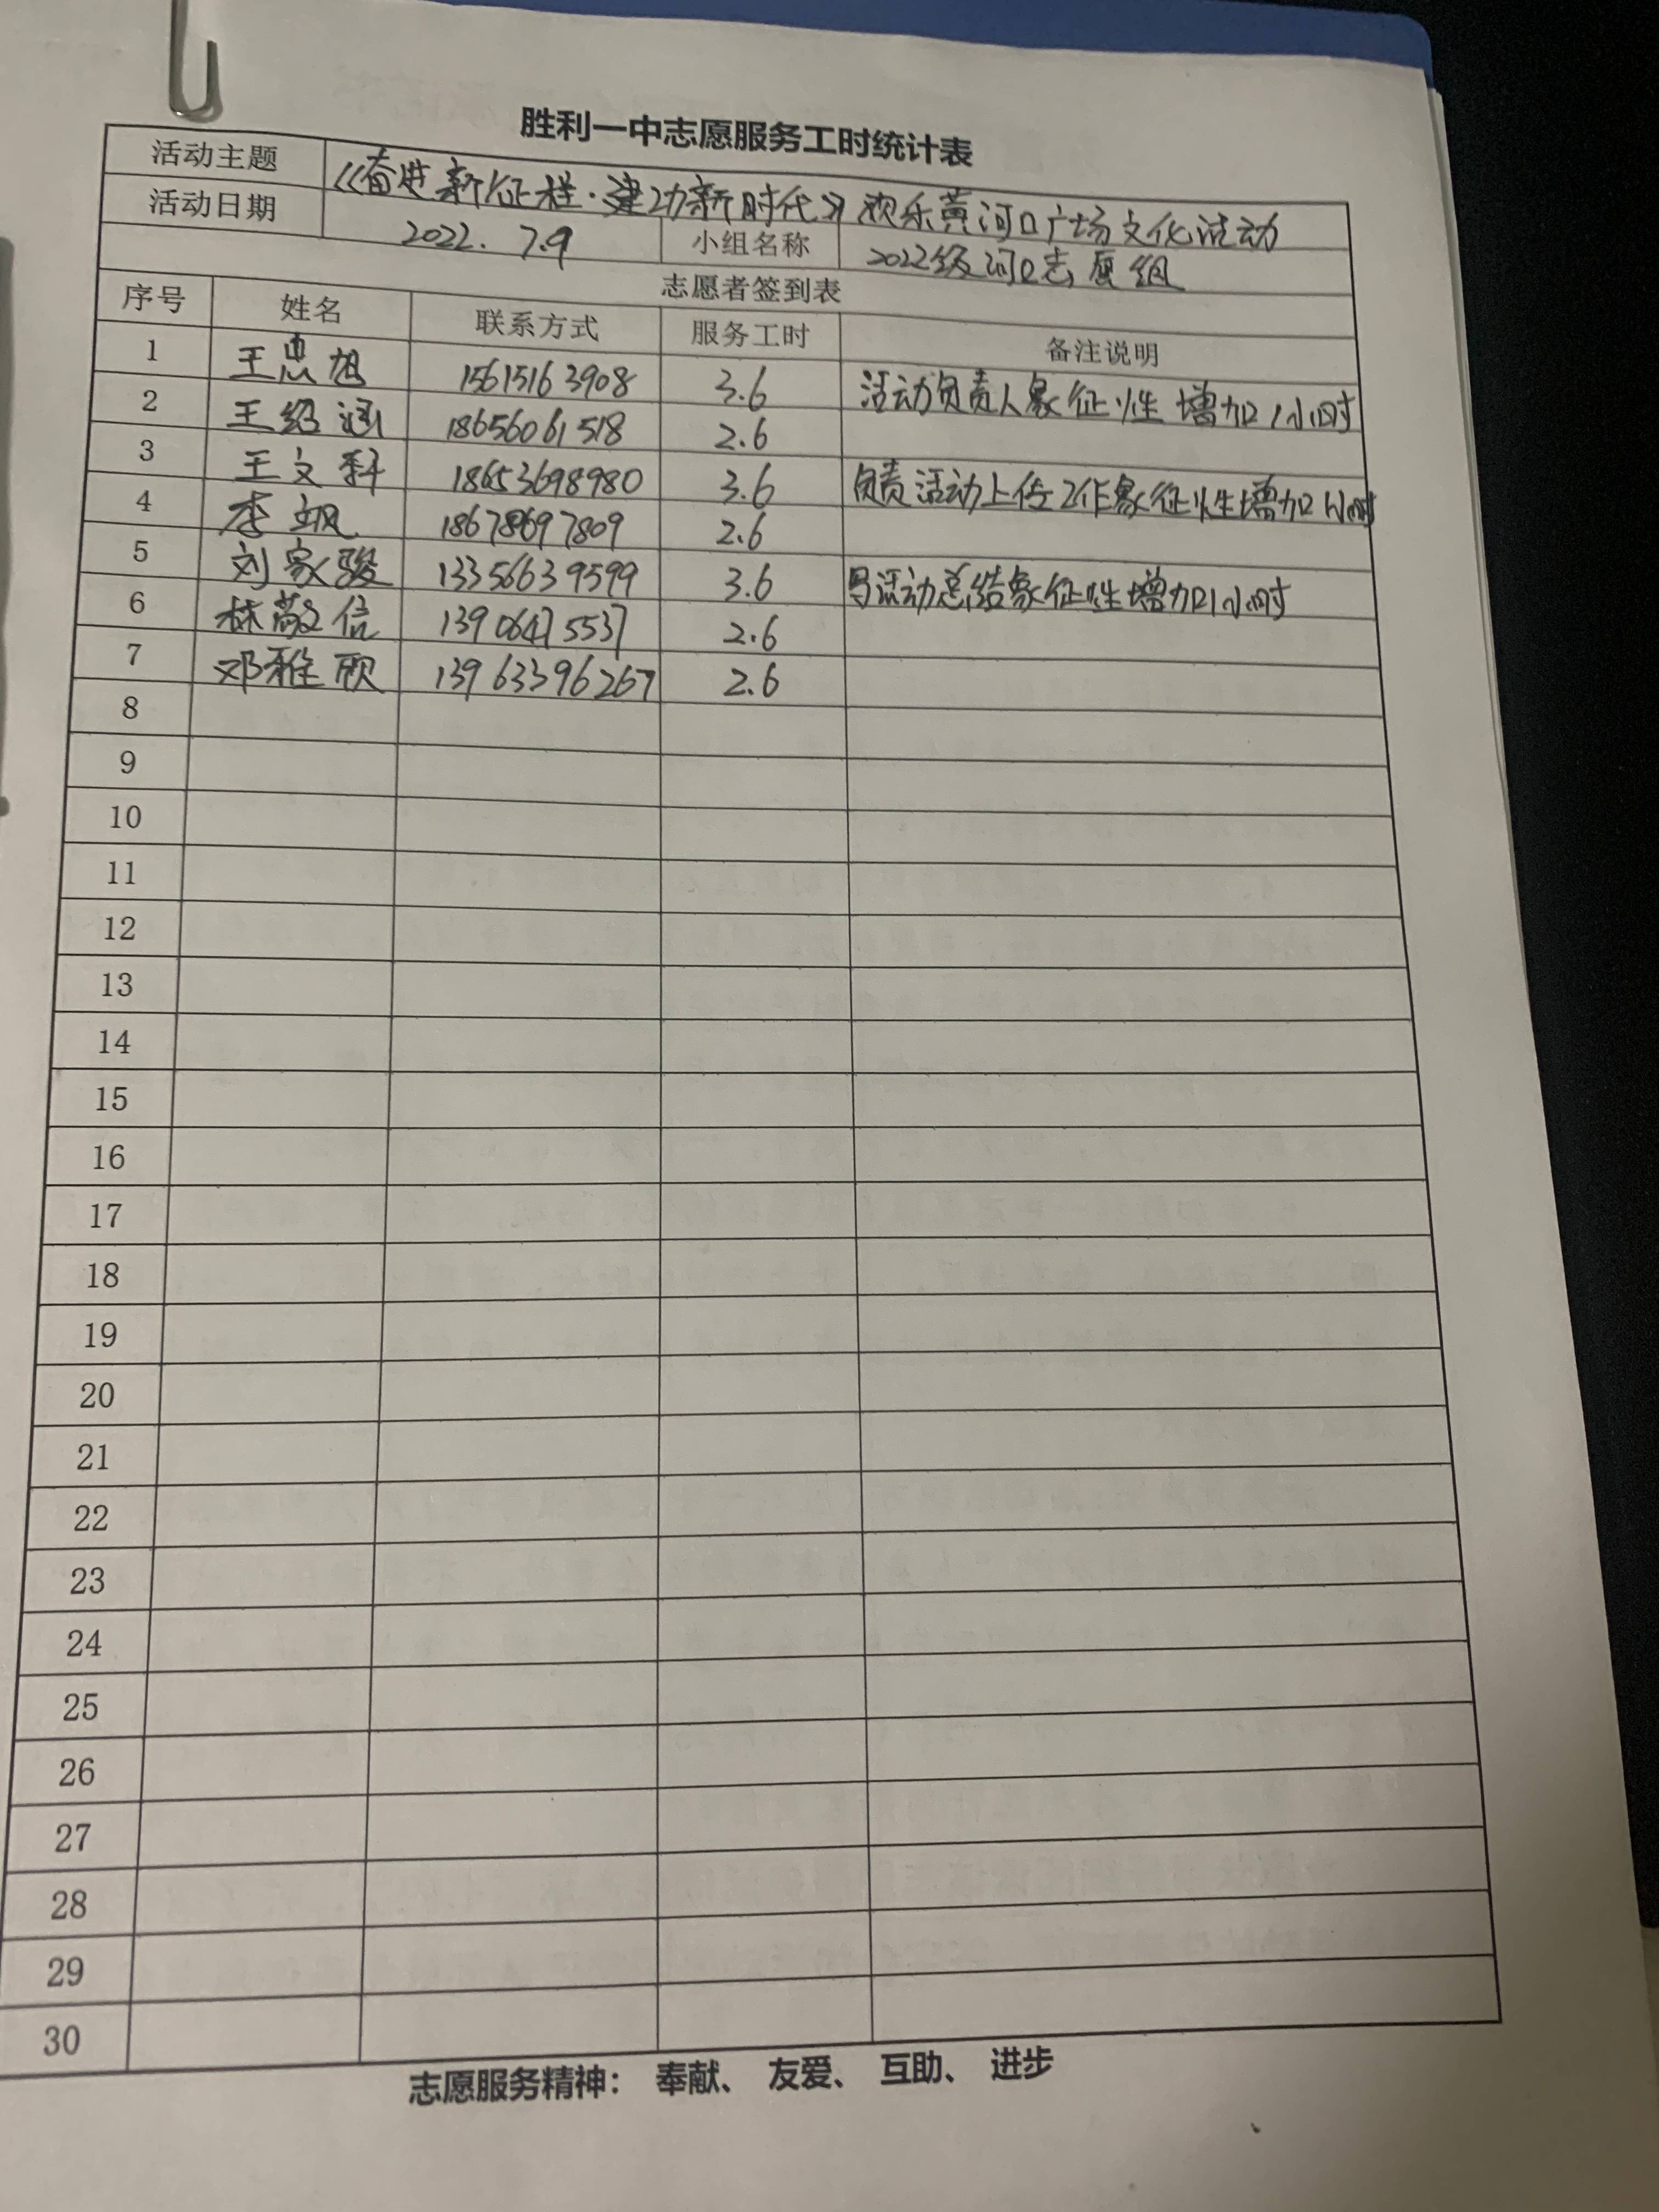 胜利一中志愿服务工时统计表
活动主题 《奋进新征程·建功新时代》欢乐黄河口广场文化活动
活动日期 2022.7.9 小组名称 2022级河口志愿组
志愿者签到表
序号 姓名 联系方式 服务工时 备注说明
1 王忠旭 15615163908 3.6 活动负责人象征性增加1小时
2 王绍涵 18656061518 2.6
3 王文科 18653698980 3.6 负责活动上传工作象征性增加1小时
4 李飒 18678697809 2.6
5 刘家骏 13356639599 3.6 写活动总结象征性增加1小时
6 林敬信 13906475537 2.6
7 邓雅颀 13963396267 2.6
8
9
10
11
12
13
14
15
16
17
18
19
20
21
22
23
24
25
26
27
28
29
30
志愿服务精神： 奉献、 友爱、 互助、 进步